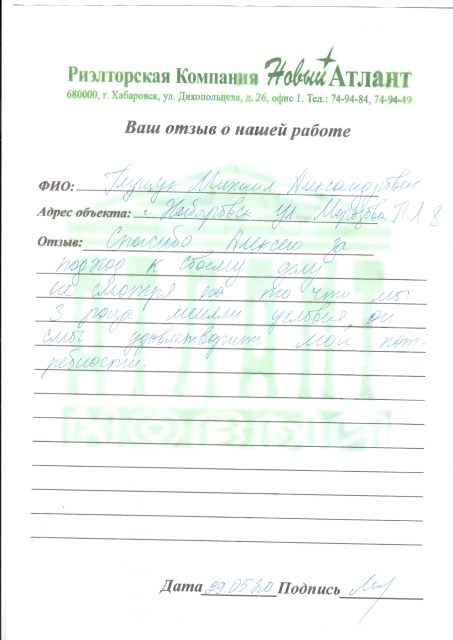 Риэлторская Компания Новый Атлант
680000, г. Хабаровск, ул. Дикопольцева, д. 26, офис 1. Тел.: 74-94-84, 74-94-49
Ваш отзыв о нашей работе
ФИО: Михаил Александрович
Адрес объекта: г. Хабаровск ул. Морозова П.Л. 8
Отзыв: Спасибо Алексею за
подход к своему делу
не смотря на то что мы
3 раза меняли условия, он
смог удовлетворить мои пот-
ребности.
Дата 29.05.20 Подпись